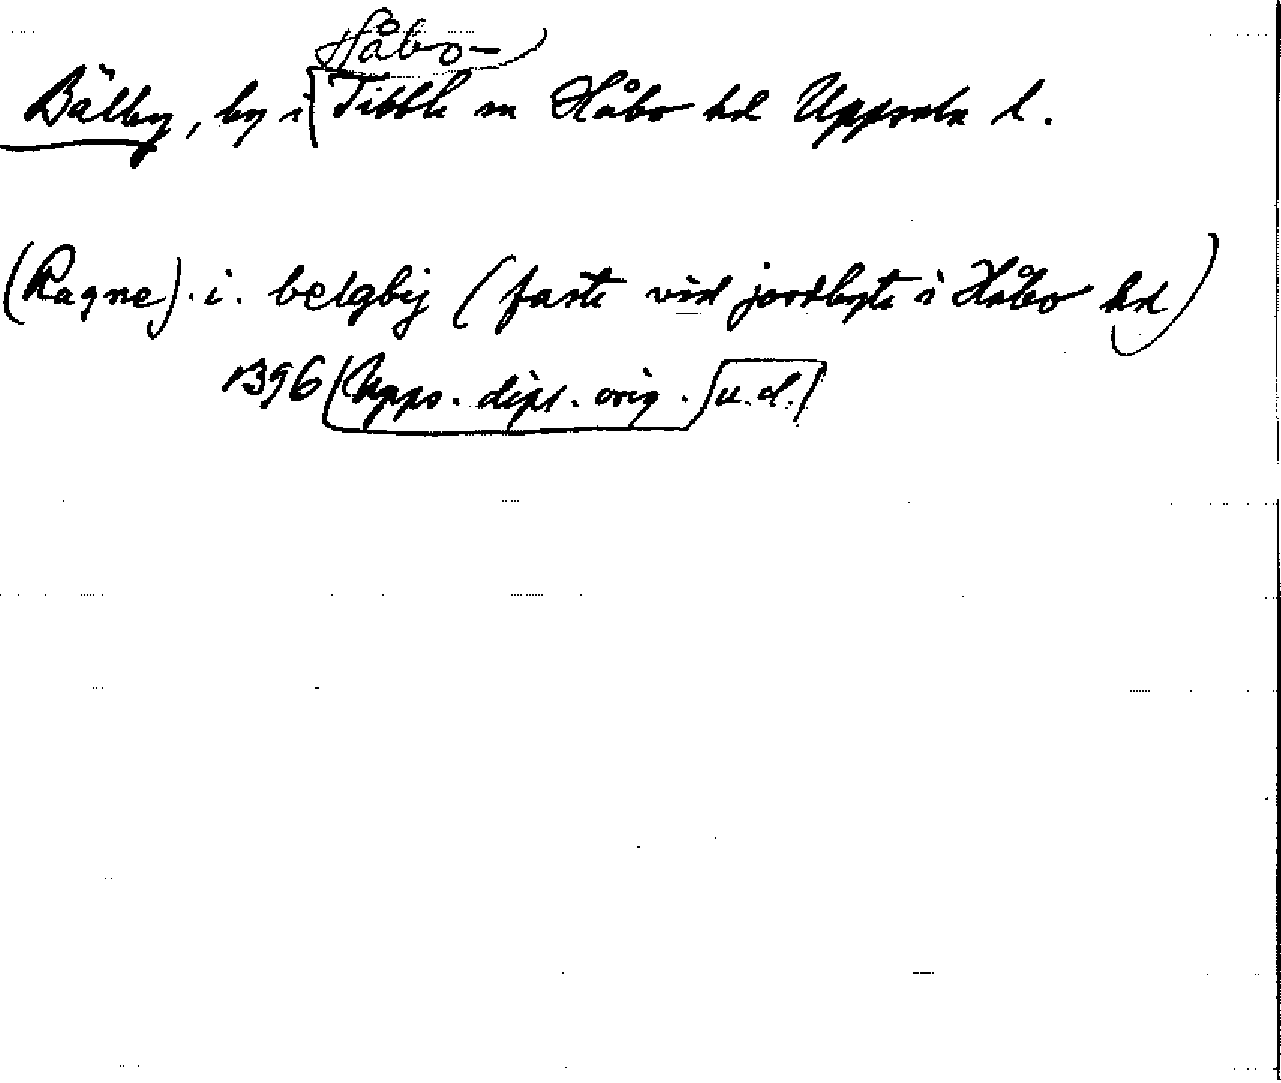 Håbo-
Bälby, by i Tibble sn Håbo hd Uppsala l.
(Ragne). i. belgby (faste vid jordbyte i Håbo hd)
1396 (Upps. dipl. orig. u.d.)